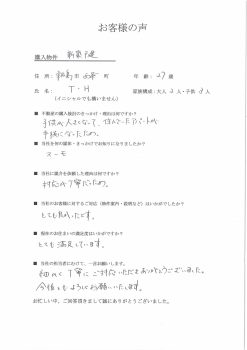 お客様の声
購入物件 新築戸建
住所: 新潟市 西蒲 町 年齢: 27歳
氏名: T・H 家族構成:大人 2人・子供 3人
(イニシャルでも構いません)
■ 不動産の購入検討・きっかけ・理由は何ですか?
子供が大きくなって 住んでいたアパートが
手狭になったため。
■ 当社を何の媒体・きっかけでお知りになりましたか?
スーモ
■ 当社に媒介を依頼した理由は何ですか?
対応が丁寧だったため。
■ 当社のお客様に対するご対応(物件案内・説明など)はいかがですか?
とても良かったです。
■ 現在のお住まいの満足度はいかがですか?
とても満足しています。
■ 当社の担当者にむけて、一言お願いします。
細かく丁寧にご対応いただきありがとうございました。
今後ともよろしくお願いいたします。
お忙しい中、ご回答頂きまして誠にありがとうございました。